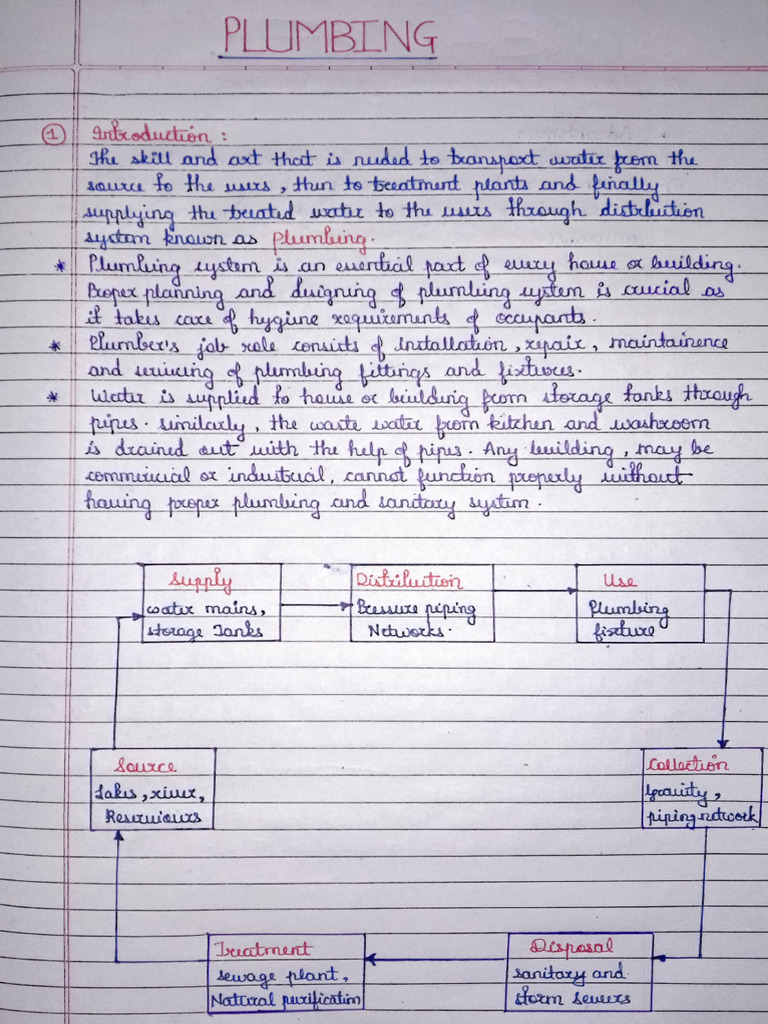 PLUMBING
① Introduction :
The skill and art that is needed to transport water from the
source to the users, then to treatment plants and finally
supplying the treated water to the users through distribution
system known as plumbing.
* Plumbing system is an essential part of every house or building.
Proper planning and designing of plumbing system is crucial as
it takes care of hygine requirements of occupants.
* Plumber's job role consists of installation, repair, maintainence
and servicing of plumbing fittings and fixtures.
* Water is supplied to house or building from storage tanks through
pipes. similarly, the waste water from kitchen and washroom
is drained out with the help of pipes. Any building, may be
commercial or industrial, cannot function properly without
having proper plumbing and sanitary system.
Supply
water mains,
storage Tanks
Distribution
Pressure piping
Networks.
Use
Plumbing
fixture
Source
Lakes, river,
Reserviours
Collection
Gravity,
piping network
Treatment
sewage plant,
Natural purification
Disposal
sanitary and
storm sewers